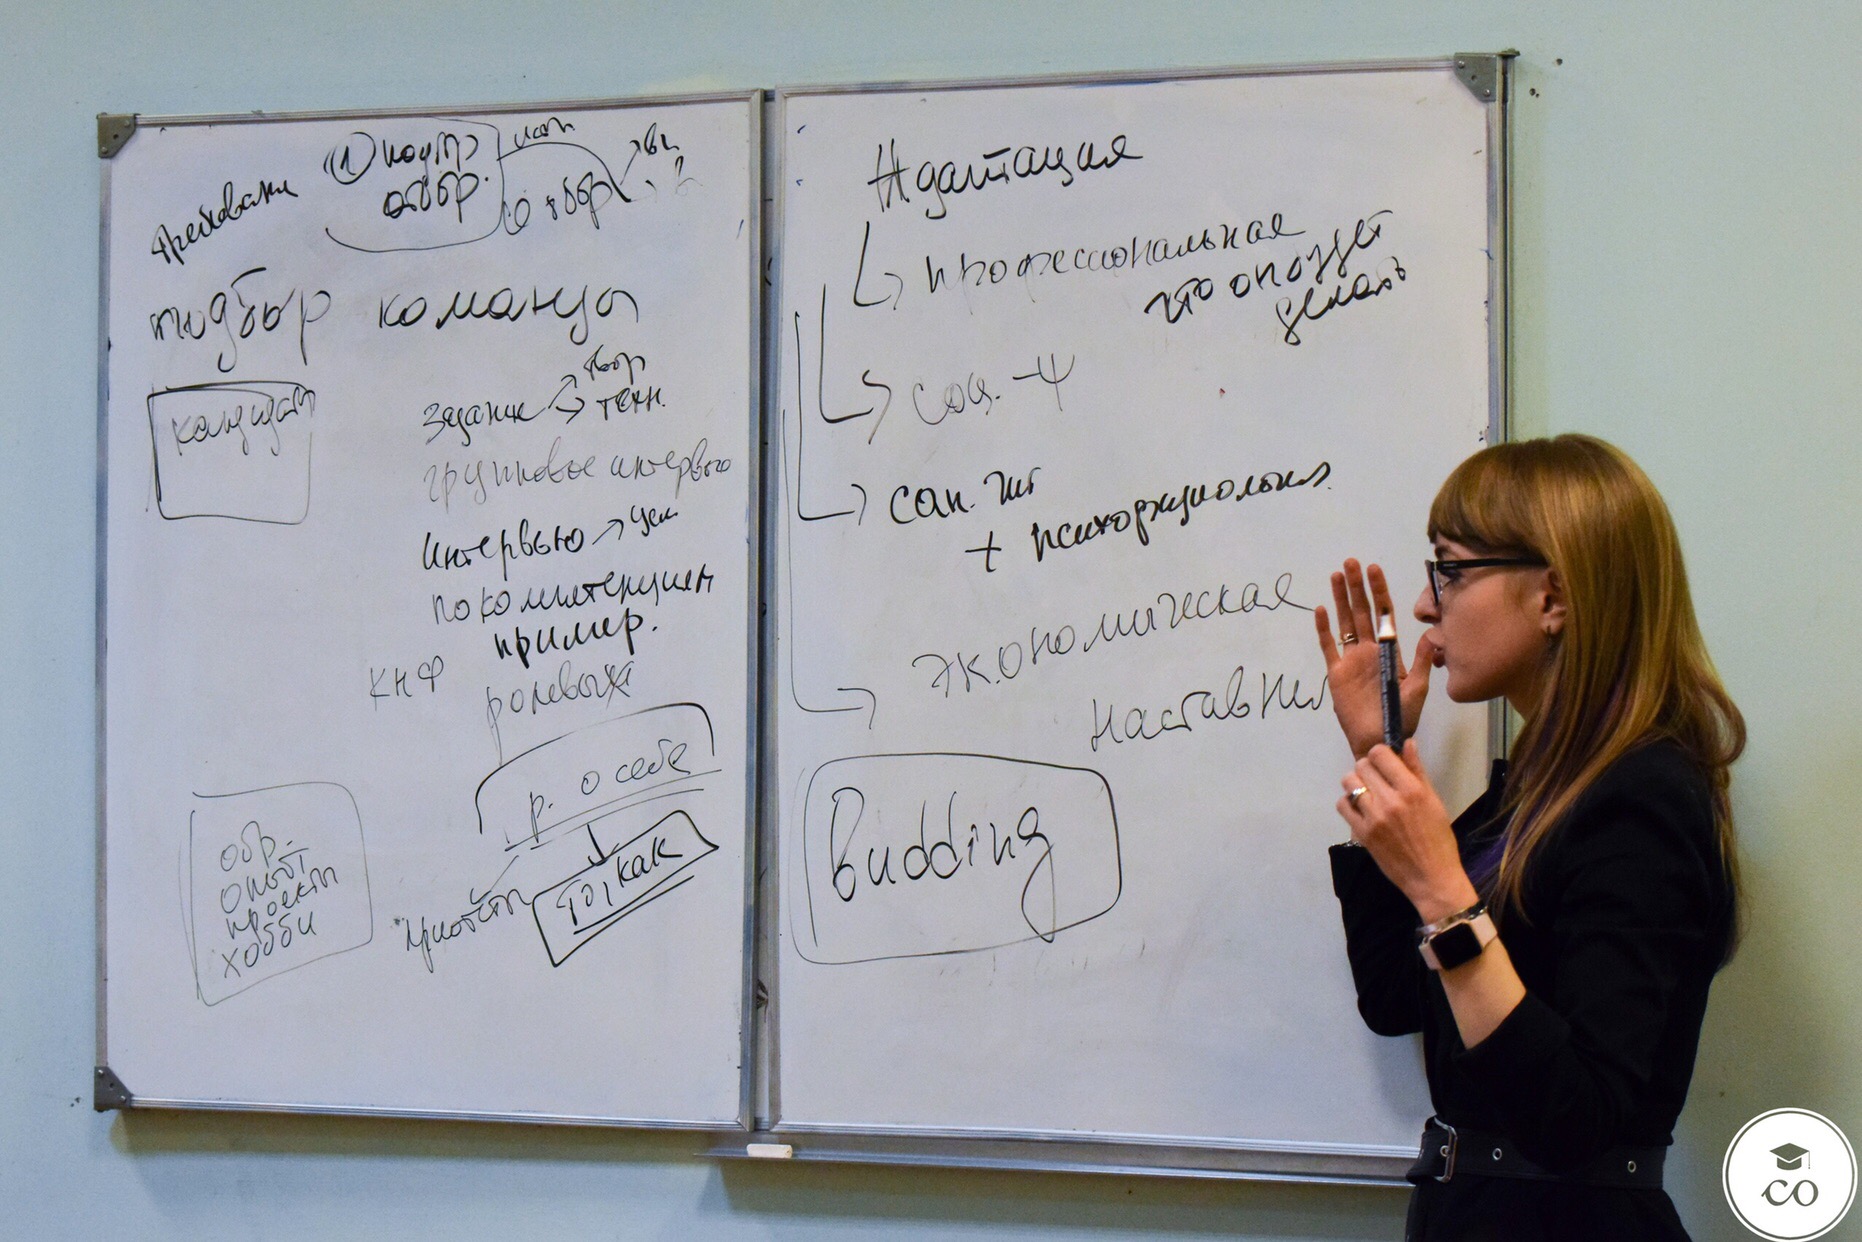 требован
① контр
отбор.
отбор
подбор команды
кандидат
задание → твор
→ техн.
групповое интервью
интервью →
по компетенциям
пример.
КНФ
ролевых
р. о себе
то, как
обр.
опыт
проекты
хобби
Адаптация
профессиональная
что он будет
делать
соц. -Ψ
сан. гиг
+ психофизиологич.
экономическая
наставни
Budding
со